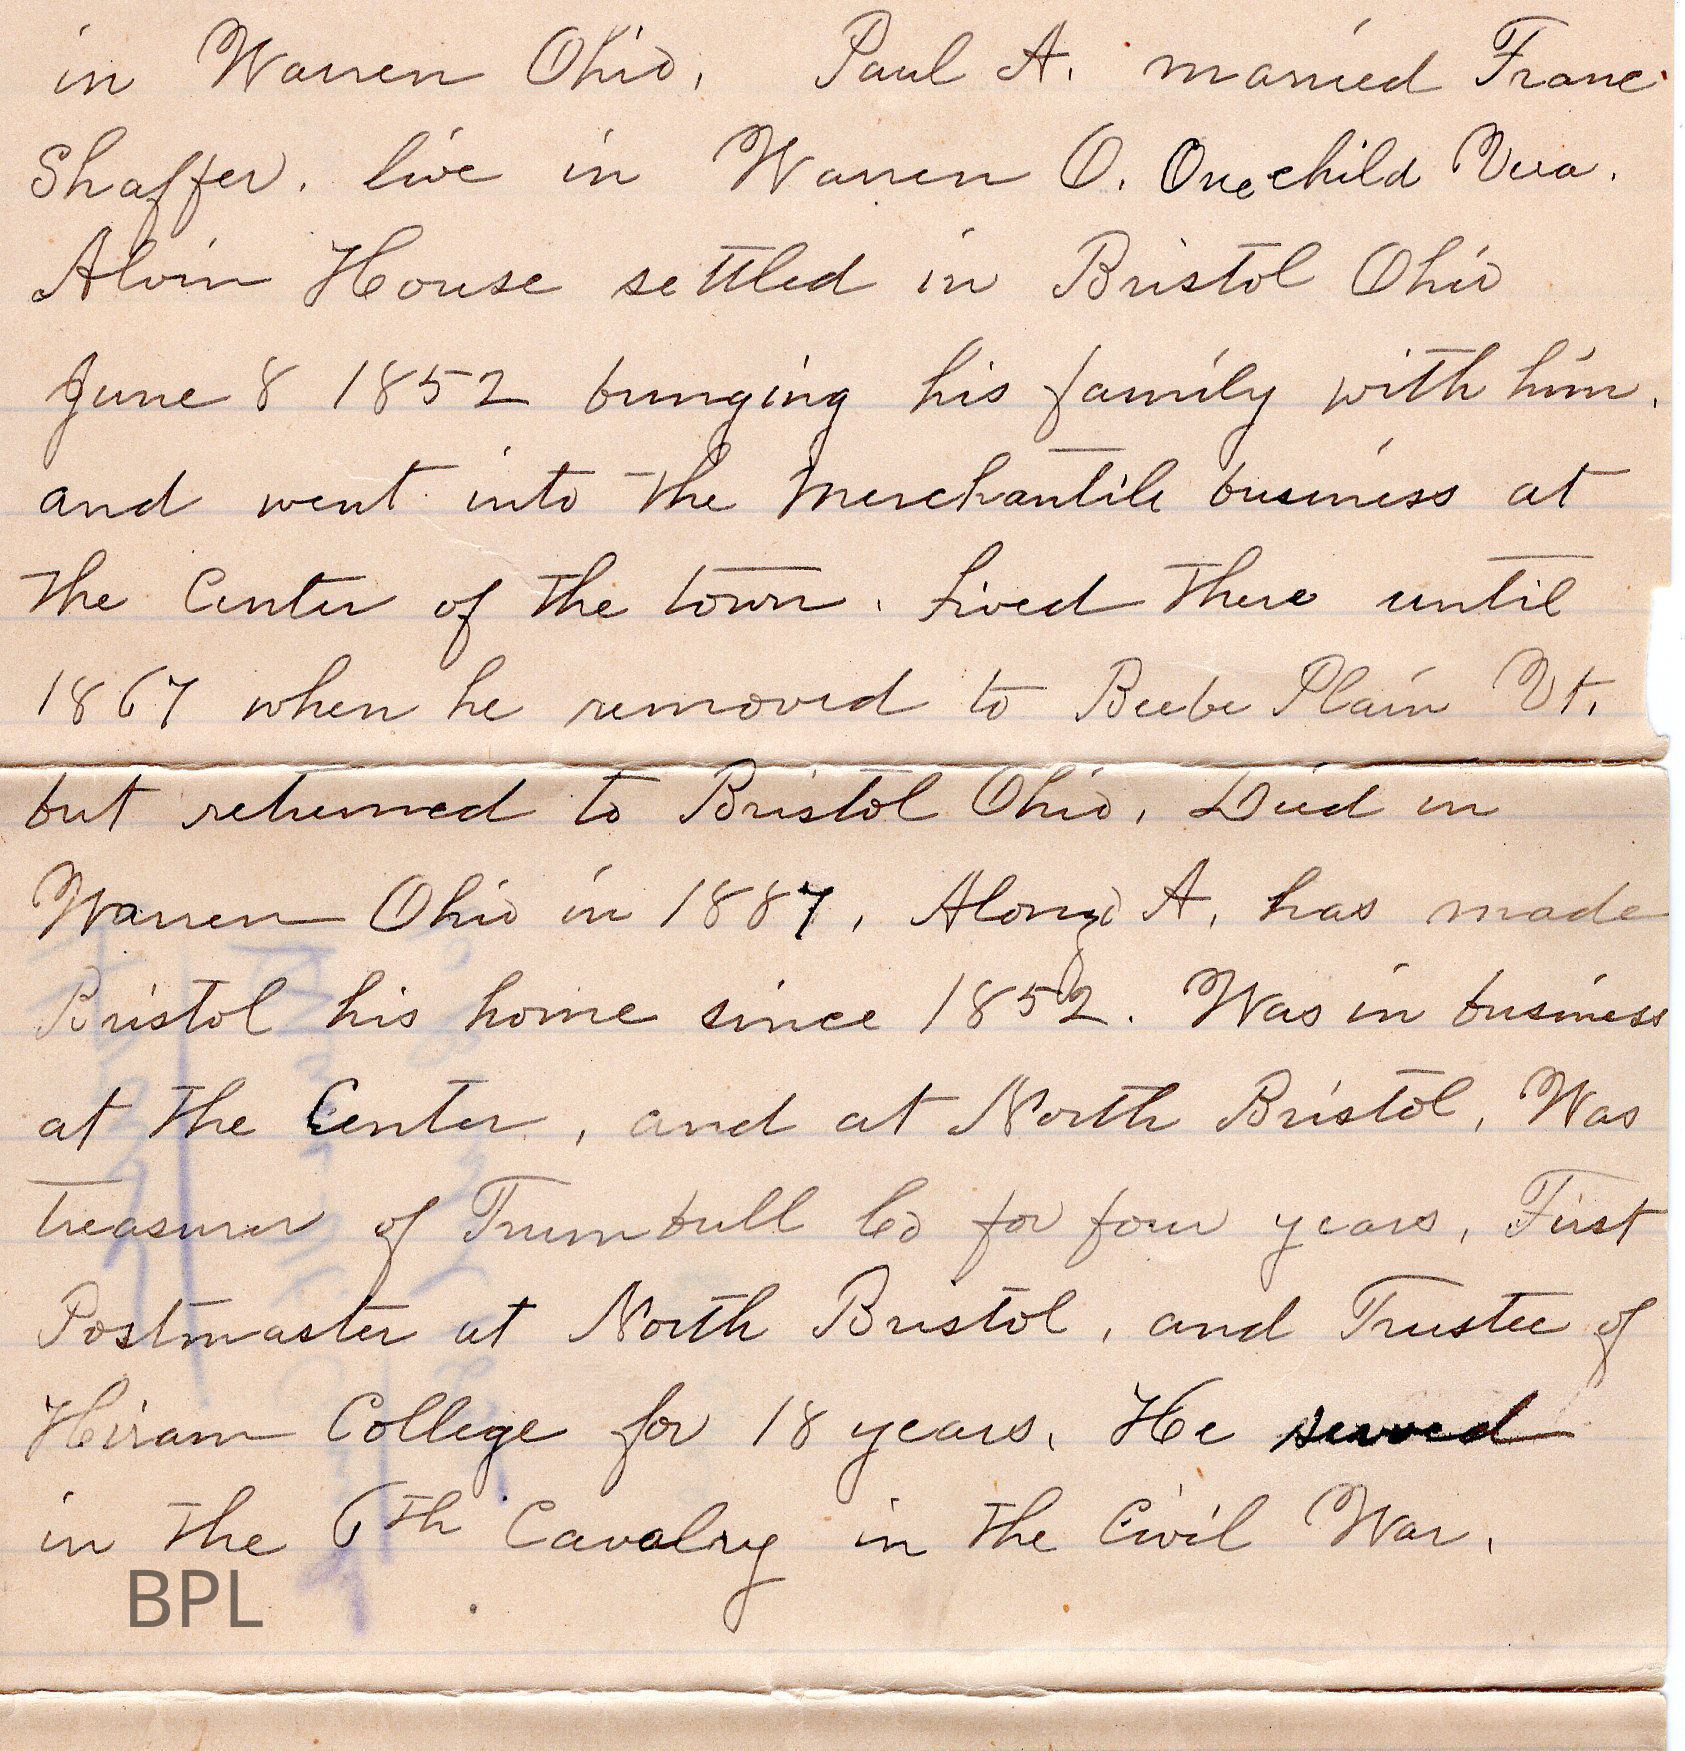 in Warren Ohio. Paul A. married Franc
Shaffer. live in Warren O. One child Vera.
Alvin House settled in Bristol Ohio
June 8 1852 bringing his family with him.
and went into the Merchantile business at
the Center of the town. Lived there until
1867 when he removed to Beebe Plain Vt.
but returned to Bristol Ohio. Died in
Warren Ohio in 1887. Alonzo A. has made
Bristol his home since 1852. Was in business
at the Center, and at North Bristol. Was
treasurer of Trumbull Co for four years. First
Postmaster at North Bristol, and Trustee of
Hiram College for 18 years. He served
in the 6th Cavalry in the Civil War.
BPL